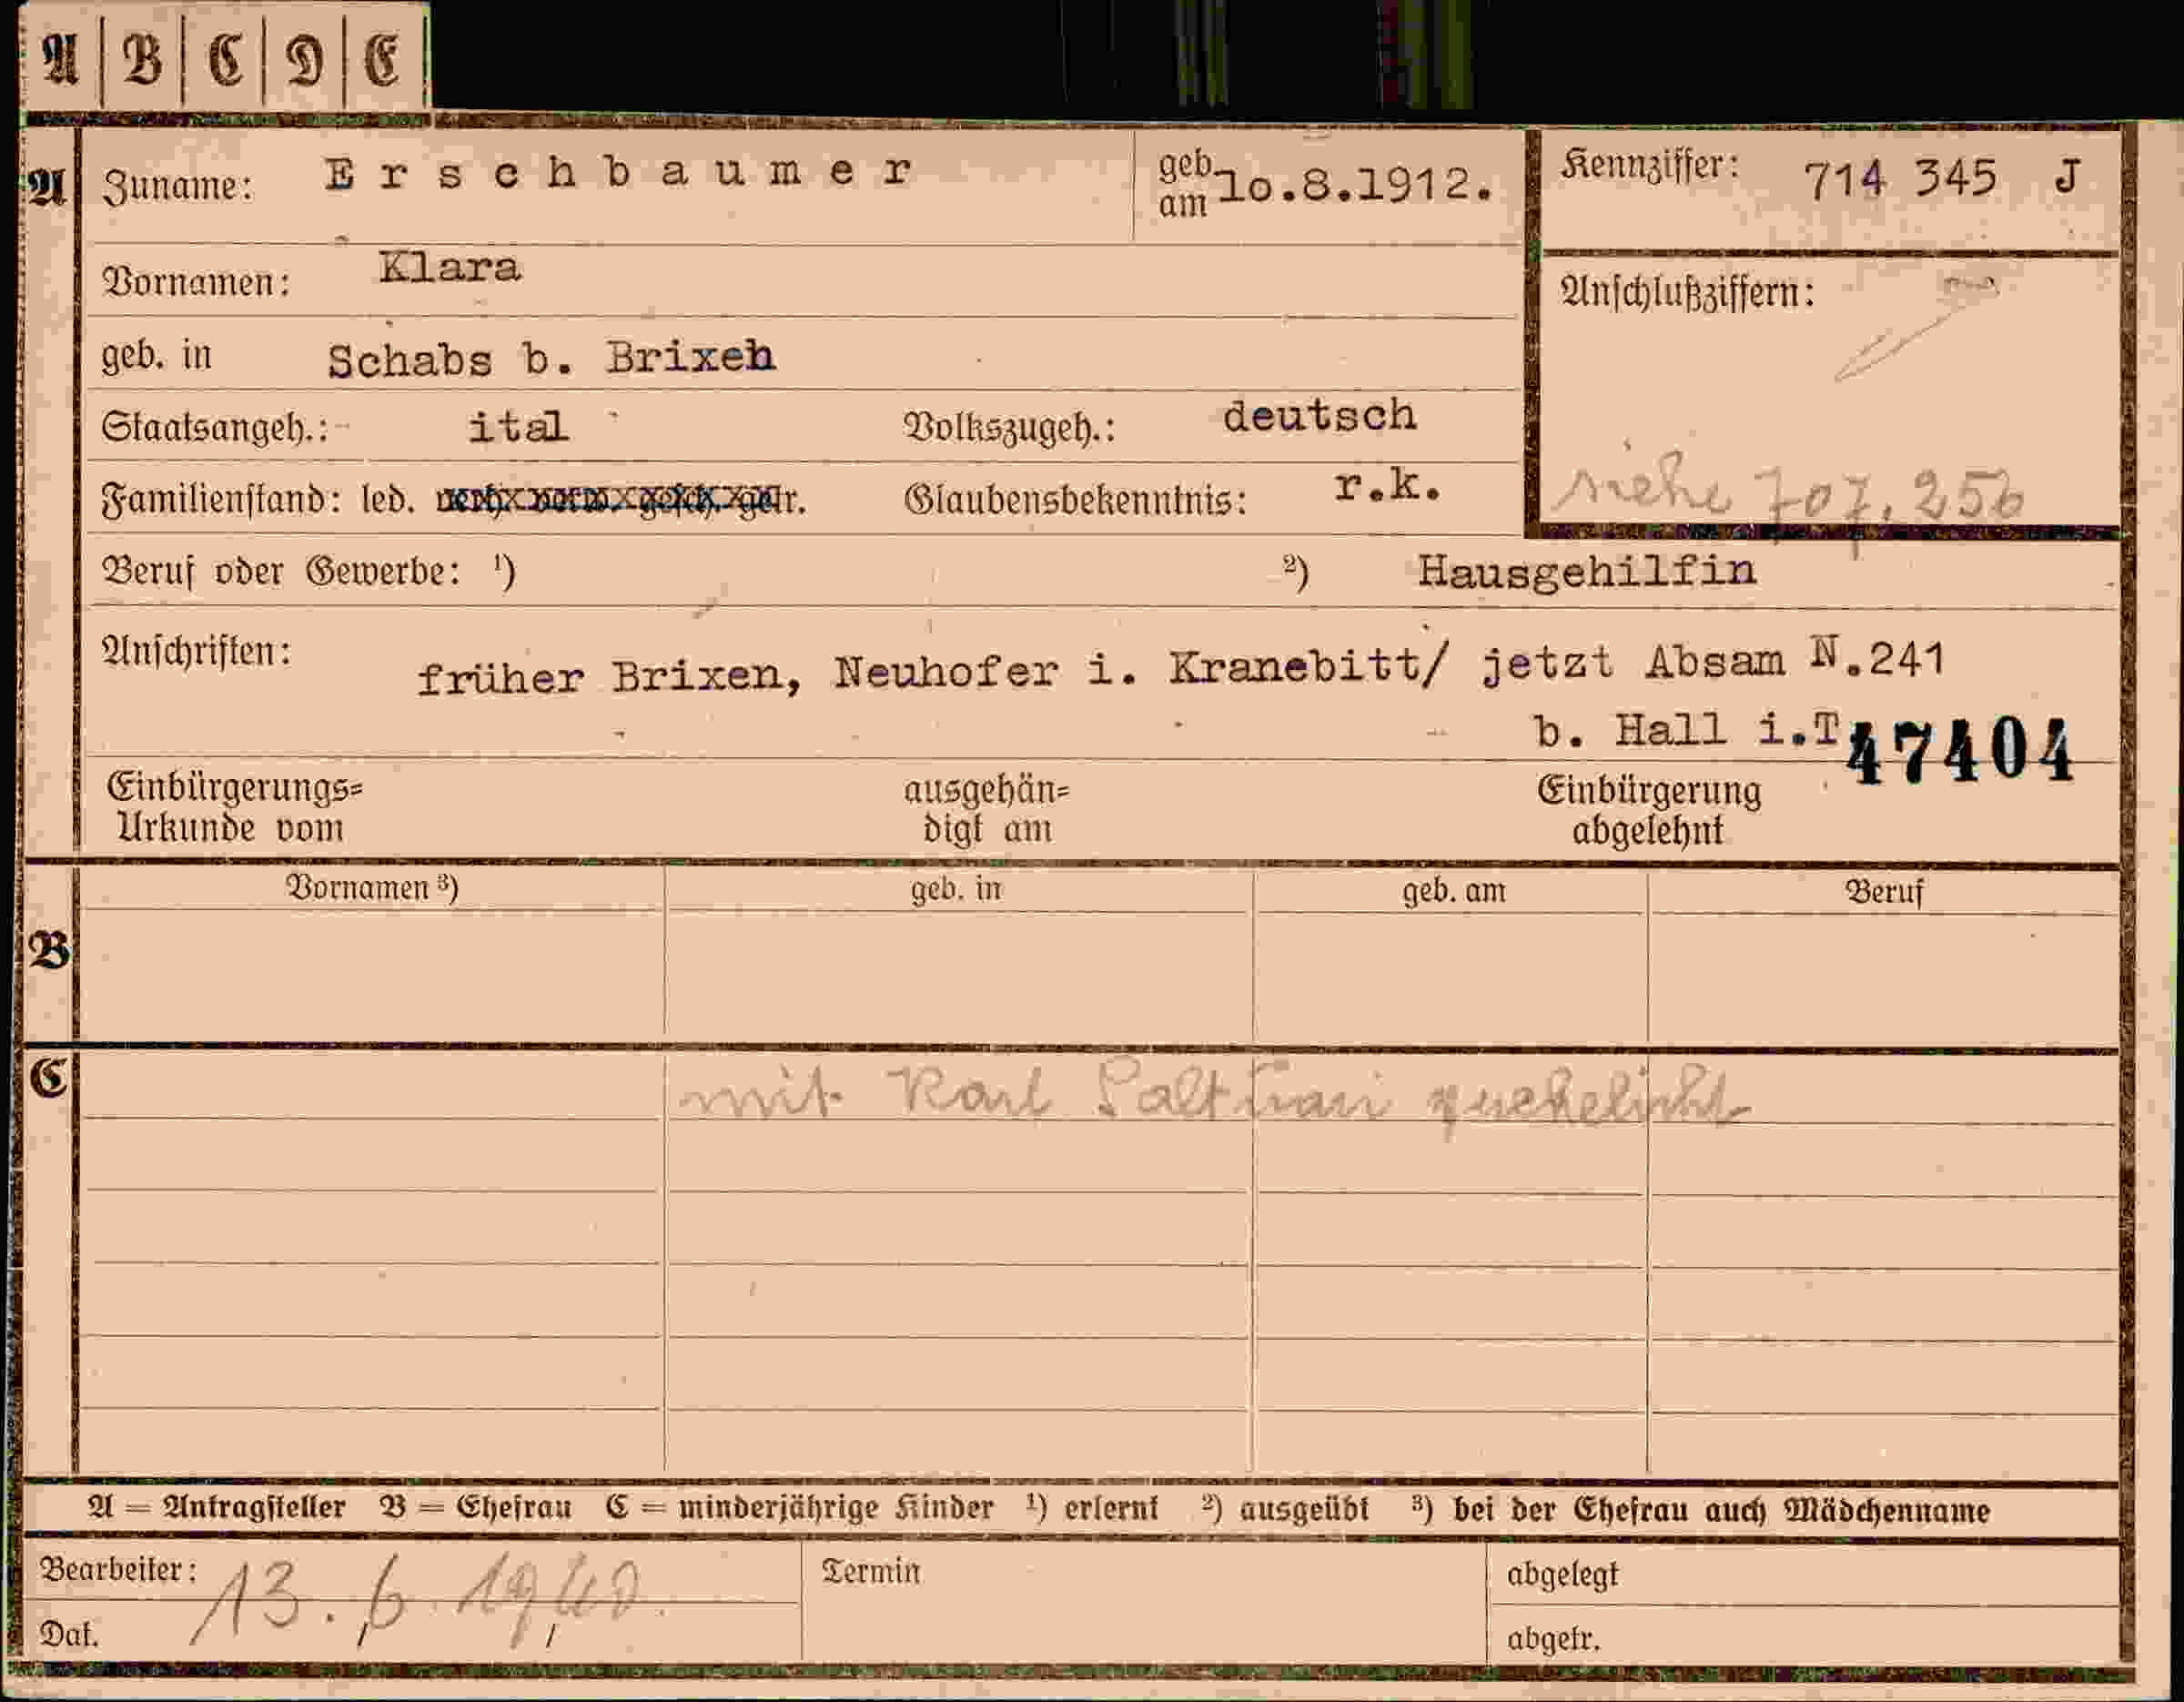 A | B | C | D | E
A Zuname: Erschbaumer geb. am 10.8.1912. Kennziffer: 714 345 J
Vornamen: Klara
Anschlußziffern:
geb. in Schabs b. Brixen
Staatsangeh.: ital Volkszugeh.: deutsch
Familienstand: led. getr. Glaubensbekenntnis: r.k.
siehe 707.256
Beruf oder Gewerbe: ¹) ²) Hausgehilfin
Anschriften: früher Brixen, Neuhofer i. Kranebitt/ jetzt Absam N.241
b. Hall i.T
47404
Einbürgerungs=
Urkunde vom
ausgehän=
digt am
Einbürgerung
abgelehnt
B Vornamen ³) geb. in geb. am Beruf
C mit Karl verehelicht
A = Antragsteller B = Ehefrau C = minderjährige Kinder ¹) erlernt ²) ausgeübt ³) bei der Ehefrau auch Mädchenname
Bearbeiter: Termin abgelegt
13. 6. 1940
Dat. abgetr.